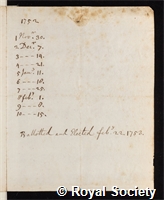 1752
1 Nov: 30.
2 Dec: 7.
3 --- 14
4 --- 21.
5 Jan: 11.
6 --- 18
7 --- 25.
8 feb: 1.
9 --- 8.
10 --- 15.
Ballotted and Elected feb: 22. 1753.
© Royal Society